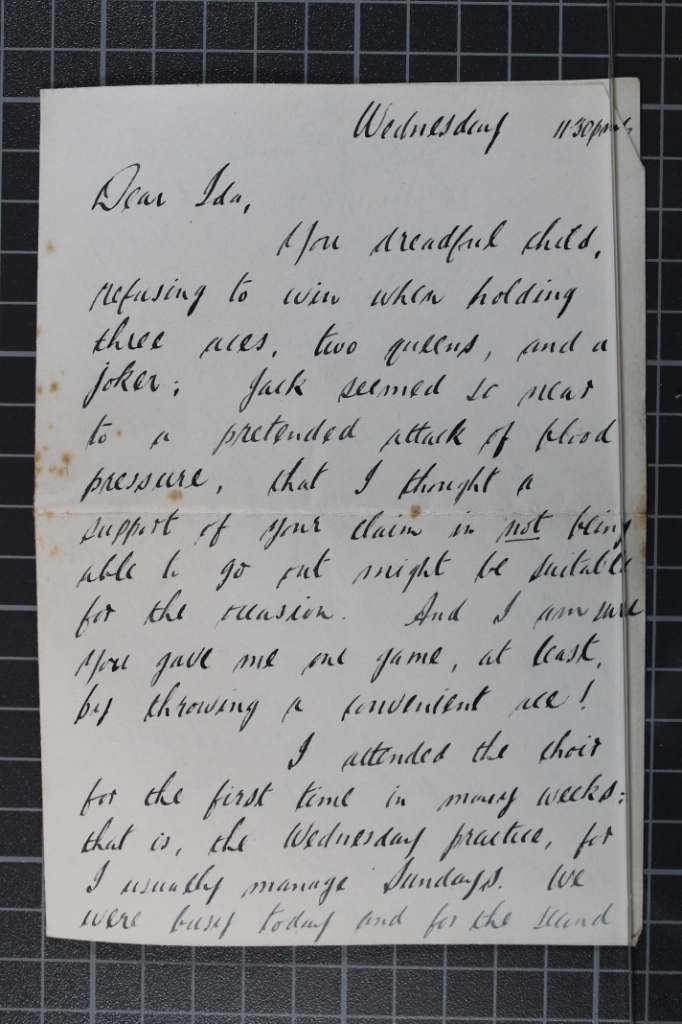 Wednesday 11.30pm
Dear Ida,
You dreadful child,
refusing to win when holding
three aces, two queens, and a
joker; Jack seemed so near
to a pretended attack of blood
pressure, that I thought a
support of your claim in not being
able to go out might be suitable
for the occasion. And I am sure
you gave me one game, at least,
by throwing a convenient ace!
I attended the choir
for the first time in many weeks:
that is, the Wednesday practice, for
I usually manage Sundays. We
were busy today and for the second